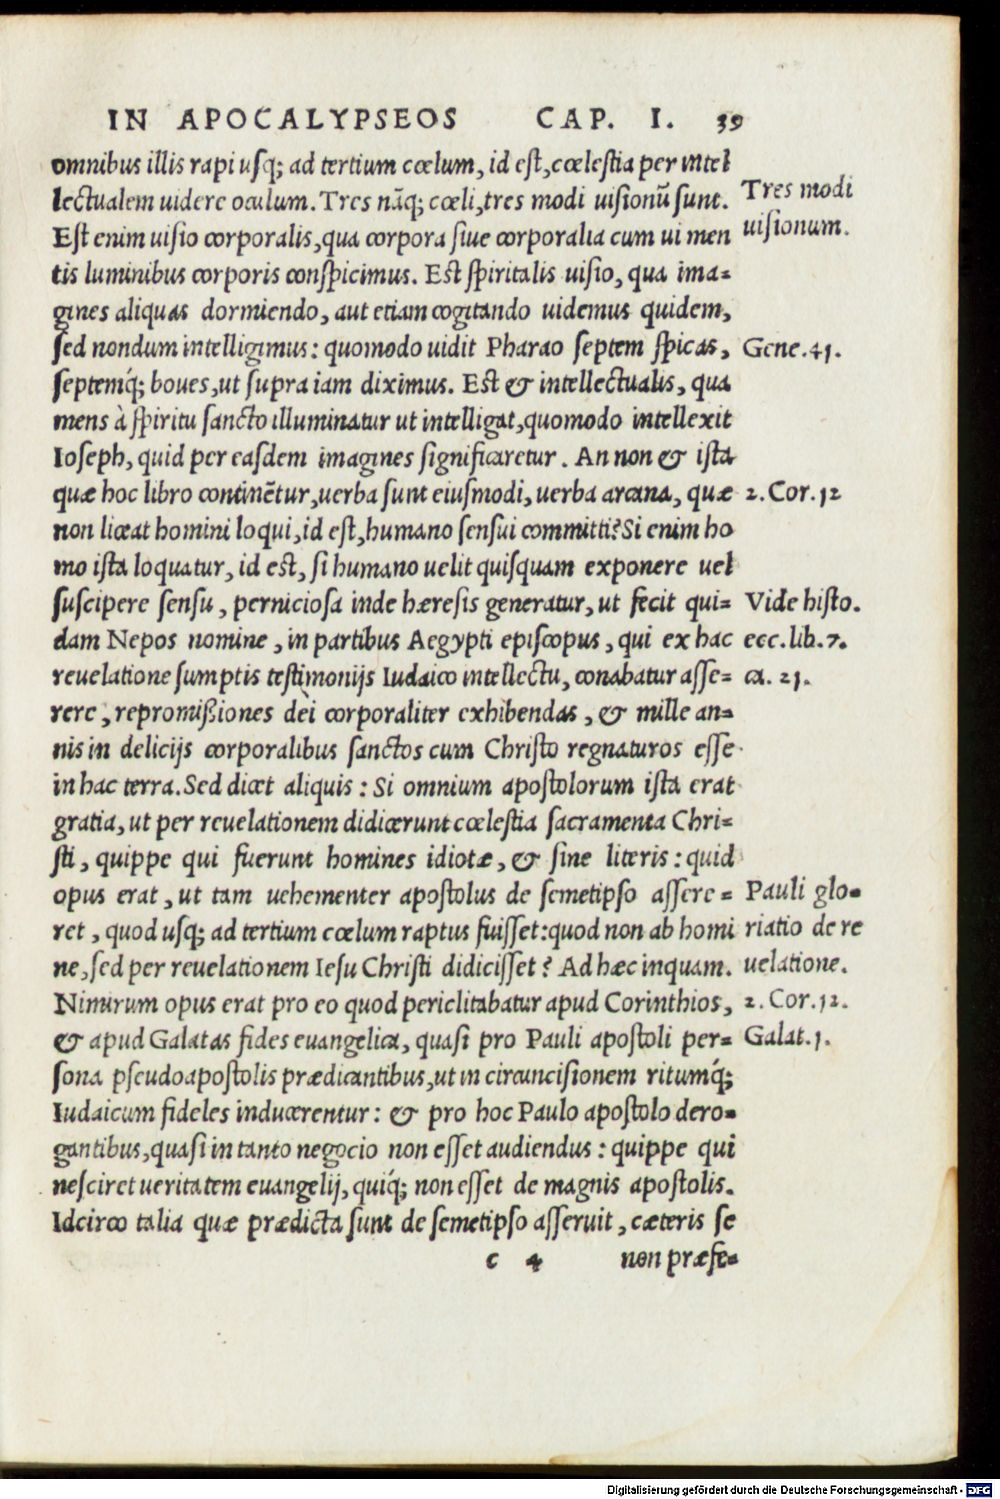 IN APOCALYPSEOS CAP. I. 39
omnibus illis rapi usq; ad tertium cœlum, id est, cœlestia per intel
lectualem uidere oculum. Tres nāq; cœli, tres modi uisionū sunt.
Tres modi
uisionum.
Est enim uisio corporalis, qua corpora siue corporalia cum ui men
tis luminibus corporis conspicimus. Est spiritalis uisio, qua ima-
gines aliquas dormiendo, aut etiam cogitando uidemus quidem,
sed nondum intelligimus: quomodo uidit Pharao septem spicas,
Gene. 41.
septemq́; boues, ut supra iam diximus. Est & intellectualis, qua
mens à spiritu sancto illuminatur ut intelligat, quomodo intellexit
Ioseph, quid per easdem imagines significaretur. An non & ista
quæ hoc libro continētur, uerba sunt eiusmodi, uerba arcana, quæ
2. Cor. 12
non liceat homini loqui, id est, humano sensui committi? Si enim ho
mo ista loquatur, id est, si humano uelit quisquam exponere uel
suscipere sensu, perniciosa inde hæresis generatur, ut fecit qui-
Vide histo.
dam Nepos nomine, in partibus Aegypti episcopus, qui ex hac
ecc. lib. 7.
reuelatione sumptis testimonijs Iudaico intellectu, conabatur asse-
ca. 21.
rere, repromißiones dei corporaliter exhibendas, & mille an-
nis in delicijs corporalibus sanctos cum Christo regnaturos esse
in hac terra. Sed dicet aliquis: Si omnium apostolorum ista erat
gratia, ut per reuelationem didicerunt cœlestia sacramenta Chri-
sti, quippe qui fuerunt homines idiotæ, & sine literis: quid
opus erat, ut tam uehementer apostolus de semetipso assere-
Pauli glo-
ret, quod usq; ad tertium cœlum raptus fuisset: quod non ab homi
riatio de re
ne, sed per reuelationem Iesu Christi didicisset? Ad hæc inquam.
uelatione.
Nimirum opus erat pro eo quod periclitabatur apud Corinthios,
2. Cor. 12.
& apud Galatas fides euangelica, quasi pro Pauli apostoli per-
Galat. 1.
sona pseudoapostolis prædicantibus, ut in circuncisionem ritumq́;
Iudaicum fideles inducerentur: & pro hoc Paulo apostolo dero-
gantibus, quasi in tanto negocio non esset audiendus: quippe qui
nesciret ueritatem euangelij, quiq́; non esset de magnis apostolis.
Idcirco talia quæ prædicta sunt de semetipso asseruit, cæteris se
c 4 non præfe-
Digitalisierung gefördert durch die Deutsche Forschungsgemeinschaft - DFG